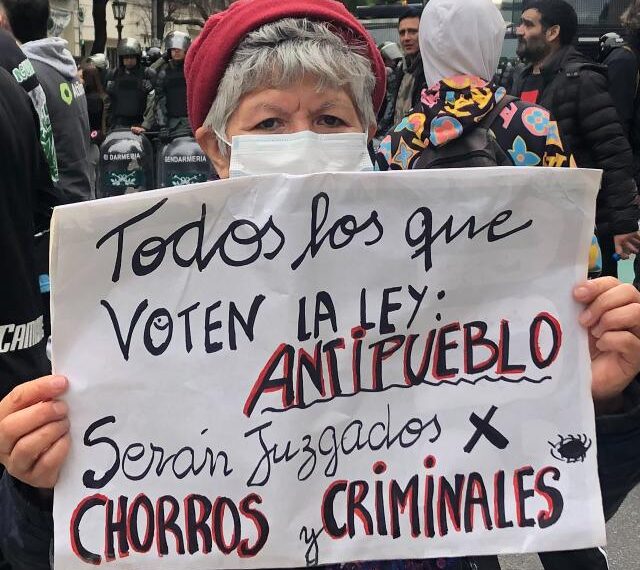 Todos los que
VOTEN LA LEY:
ANTIPUEBLO
Serán Juzgados X
CHORROS y CRIMINALES
DARMERIA
GENDARME